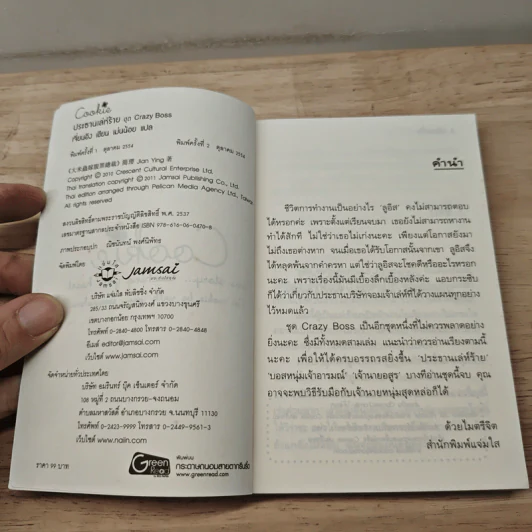 Cookie
ประธานเล่ห์ร้าย ชุด Crazy Boss
เจี่ยนอิง เขียน เม่นน้อย แปล
พิมพ์ครั้งที่ 1 ตุลาคม 2554 พิมพ์ครั้งที่ 2 ตุลาคม 2554
Jian Ying 著
Copyright © 2010 Crescent Cultural Enterprise Ltd.
Thai translation copyright © 2011 Jamsai Publishing Co., Ltd.
Thai edition arranged through Pelican Media Agency Ltd., Taiwan
All rights reserved.
สงวนลิขสิทธิ์ตามพระราชบัญญัติลิขสิทธิ์ พ.ศ. 2537
เลขมาตรฐานสากลประจำหนังสือ ISBN 978-616-06-0470-8
ภาพประกอบปก ณัชนันทน์ พงศ์นิพัทธ
จัดพิมพ์โดย
Jamsai
บริษัท แจ่มใส พับลิชชิ่ง จำกัด
285/33 ถนนจรัญสนิทวงศ์ แขวงบางขุนศรี
เขตบางกอกน้อย กรุงเทพฯ 10700
โทรศัพท์ 0-2840-4800 โทรสาร 0-2840-4848
อีเมล์ editor@jamsai.com
เว็บไซต์ www.jamsai.com
จัดจำหน่ายทั่วประเทศโดย
บริษัท อมรินทร์ บุ๊ค เซ็นเตอร์ จำกัด
108 หมู่ที่ 2 ถนนบางกรวย-จงถนอม
ตำบลมหาสวัสดิ์ อำเภอบางกรวย จ.นนทบุรี 11130
โทรศัพท์ 0-2423-9999 โทรสาร 0-2449-9561-3
เว็บไซต์ www.naiin.com
ราคา 99 บาท
Green Read
พิมพ์บน
กระดาษถนอมสายตากรีนรีด
www.greenread.com
คำนำ
ชีวิตการทำงานเป็นอย่างไร 'ลูอีส' คงไม่สามารถตอบ
ได้หรอกค่ะ เพราะตั้งแต่เรียนจบมา เธอยังไม่สามารถหางาน
ทำได้สักที ไม่ใช่ว่าเธอไม่เก่งนะคะ เพียงแต่โอกาสยังมา
ไม่ถึงเธอต่างหาก จนเมื่อเธอได้รับโอกาสนั้นจากเขา ลูอีสจึง
ได้หลุดพ้นจากคำครหา แต่ใช่ว่าลูอีสจะโชคดีหรืออะไรหรอก
นะคะ เพราะเรื่องนี้มันมีเบื้องลึกเบื้องหลังค่ะ แอบกระซิบ
ก็ได้ว่าเกี่ยวกับประธานบริษัทจอมเจ้าเล่ห์ที่ได้วางแผนทุกอย่าง
ไว้หมดแล้ว
ชุด Crazy Boss เป็นอีกชุดหนึ่งที่ไม่ควรพลาดอย่าง
ยิ่งนะคะ ซึ่งมีทั้งหมดสามเล่ม แนะนำว่าควรอ่านเรียงตามนี้
นะคะ เพื่อให้ได้ครบอรรถรสยิ่งขึ้น 'ประธานเล่ห์ร้าย'
'บอสหนุ่มเจ้าอารมณ์' 'เจ้านายอสูร' บางทีอ่านชุดนี้จบ คุณ
อาจจะพบวิธีรับมือกับเจ้านายหนุ่มสุดหล่อก็ได้
ด้วยไมตรีจิต
สำนักพิมพ์แจ่มใส